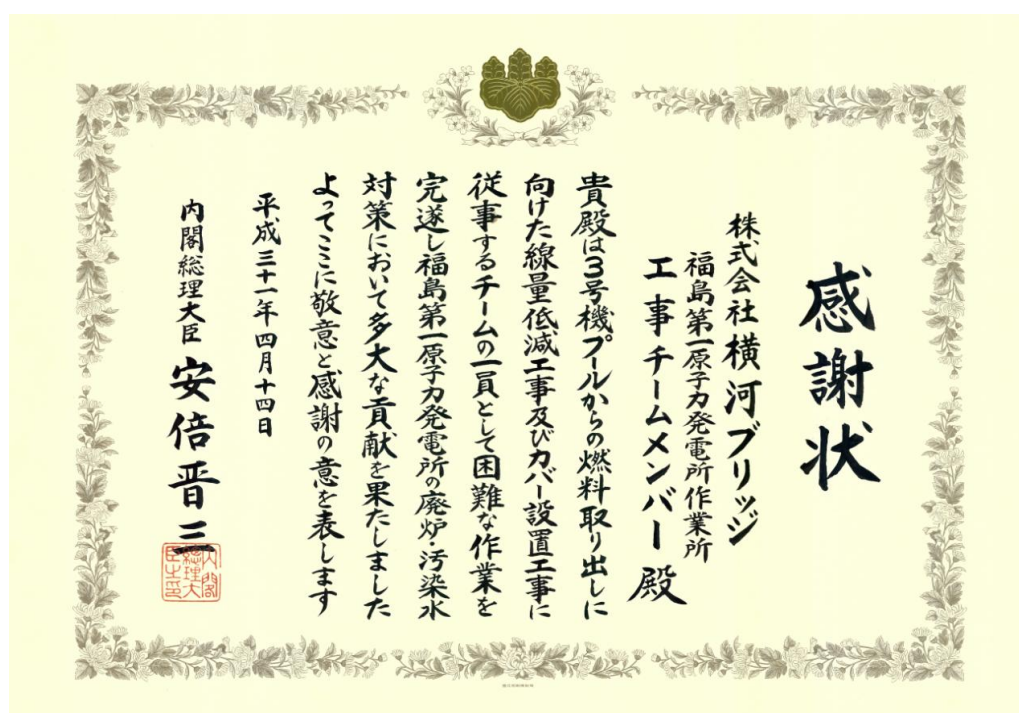 感謝状
株式会社横河ブリッジ
福島第一原子力発電所作業所
工事チームメンバー殿
貴殿は3号機プールからの燃料取り出しに
向けた線量低減工事及びカバー設置工事に
従事するチームの一員として困難な作業を
完遂し福島第一原子力発電所の廃炉・汚染水
対策において多大な貢献を果たしました
よってここに敬意と感謝の意を表します
平成三十一年四月十四日
内閣総理大臣 安倍晋三
内閣
総理大
臣之印